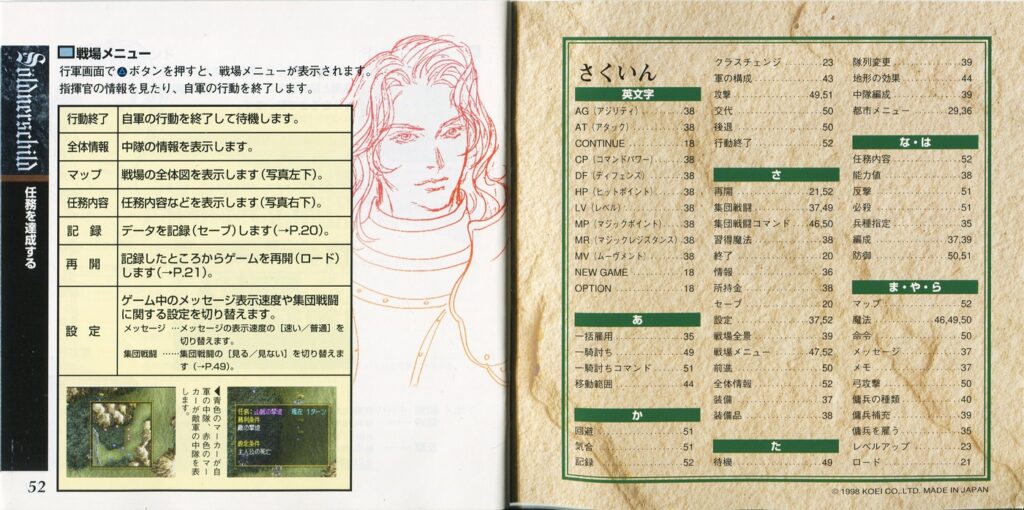 Söldnerschild
任務を達成する
戦場メニュー
行軍画面で▲ボタンを押すと、戦場メニューが表示されます。
指揮官の情報を見たり、自軍の行動を終了します。
行動終了 自軍の行動を終了して待機します。
全体情報 中隊の情報を表示します。
マップ 戦場の全体図を表示します(写真左下)。
任務内容 任務内容などを表示します(写真右下)。
記録 データを記録(セーブ)します(→P.20)。
再開 記録したところからゲームを再開(ロード)
します(→P.21)。
設定 ゲーム中のメッセージ表示速度や集団戦闘
に関する設定を切り替えます。
メッセージ …メッセージの表示速度の[速い/普通]を
切り替えます。
集団戦闘 ……集団戦闘の[見る/見ない]を切り替えま
す(→P.49)。
◀青色のマーカーが自
軍の中隊、赤色のマー
カーが敵軍の中隊を表
します。
任務:山賊の撃退 現在 1ターン
勝利条件
敵の撃退
敗北条件
主人公の死亡
52
さくいん
英文字
AG(アジリティ) 38
AT(アタック) 38
CONTINUE 18
CP(コマンドパワー) 38
DF(ディフェンス) 38
HP(ヒットポイント) 38
LV(レベル) 38
MP(マジックポイント) 38
MR(マジックレジスタンス) 38
MV(ムーヴメント) 38
NEW GAME 18
OPTION 18
あ
一括雇用 35
一騎討ち 49
一騎討ちコマンド 51
移動範囲 44
か
回避 51
気合 51
記録 52
クラスチェンジ 23
軍の構成 43
攻撃 49,51
交代 50
後退 50
行動終了 52
さ
再開 21,52
集団戦闘 37,49
集団戦闘コマンド 46,50
習得魔法 38
終了 20
情報 36
所持金 38
セーブ 20
設定 37,52
戦場全景 39
戦場メニュー 47,52
前進 50
全体情報 52
装備 37
装備品 38
た
待機 49
隊列変更 39
地形の効果 44
中隊編成 39
都市メニュー 29,36
な・は
任務内容 52
能力値 38
反撃 51
必殺 51
兵種指定 35
編成 37,39
防御 50,51
ま・や・ら
マップ 52
魔法 46,49,50
命令 50
メッセージ 37
メモ 37
弓攻撃 50
傭兵の種類 40
傭兵補充 39
傭兵を雇う 35
レベルアップ 23
ロード 21
© 1998 KOEI CO., LTD. MADE IN JAPAN